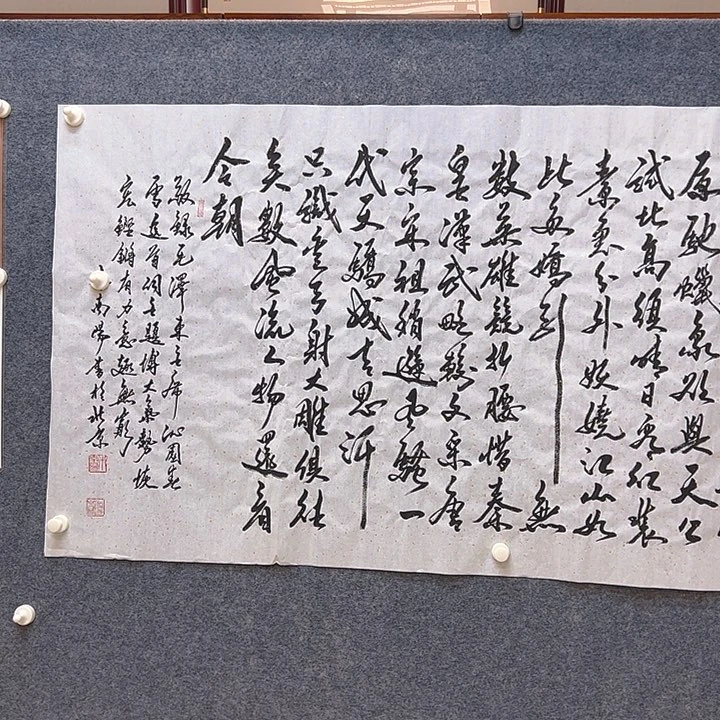 原馳蠟象欲與天公
試比高須晴日看紅裝
素裹分外妖嬈江山如
此多嬌引無
數英雄競折腰惜秦
皇漢武略輸文采唐
宗宋祖稍遜風騷一
代天驕成吉思汗
只識彎弓射大雕俱往
矣數風流人物還看
今朝
敬錄毛澤東主席沁園春
雪這首詞主題博大氣勢恢
宏鏗鏘有力意趣無窮
書於北京